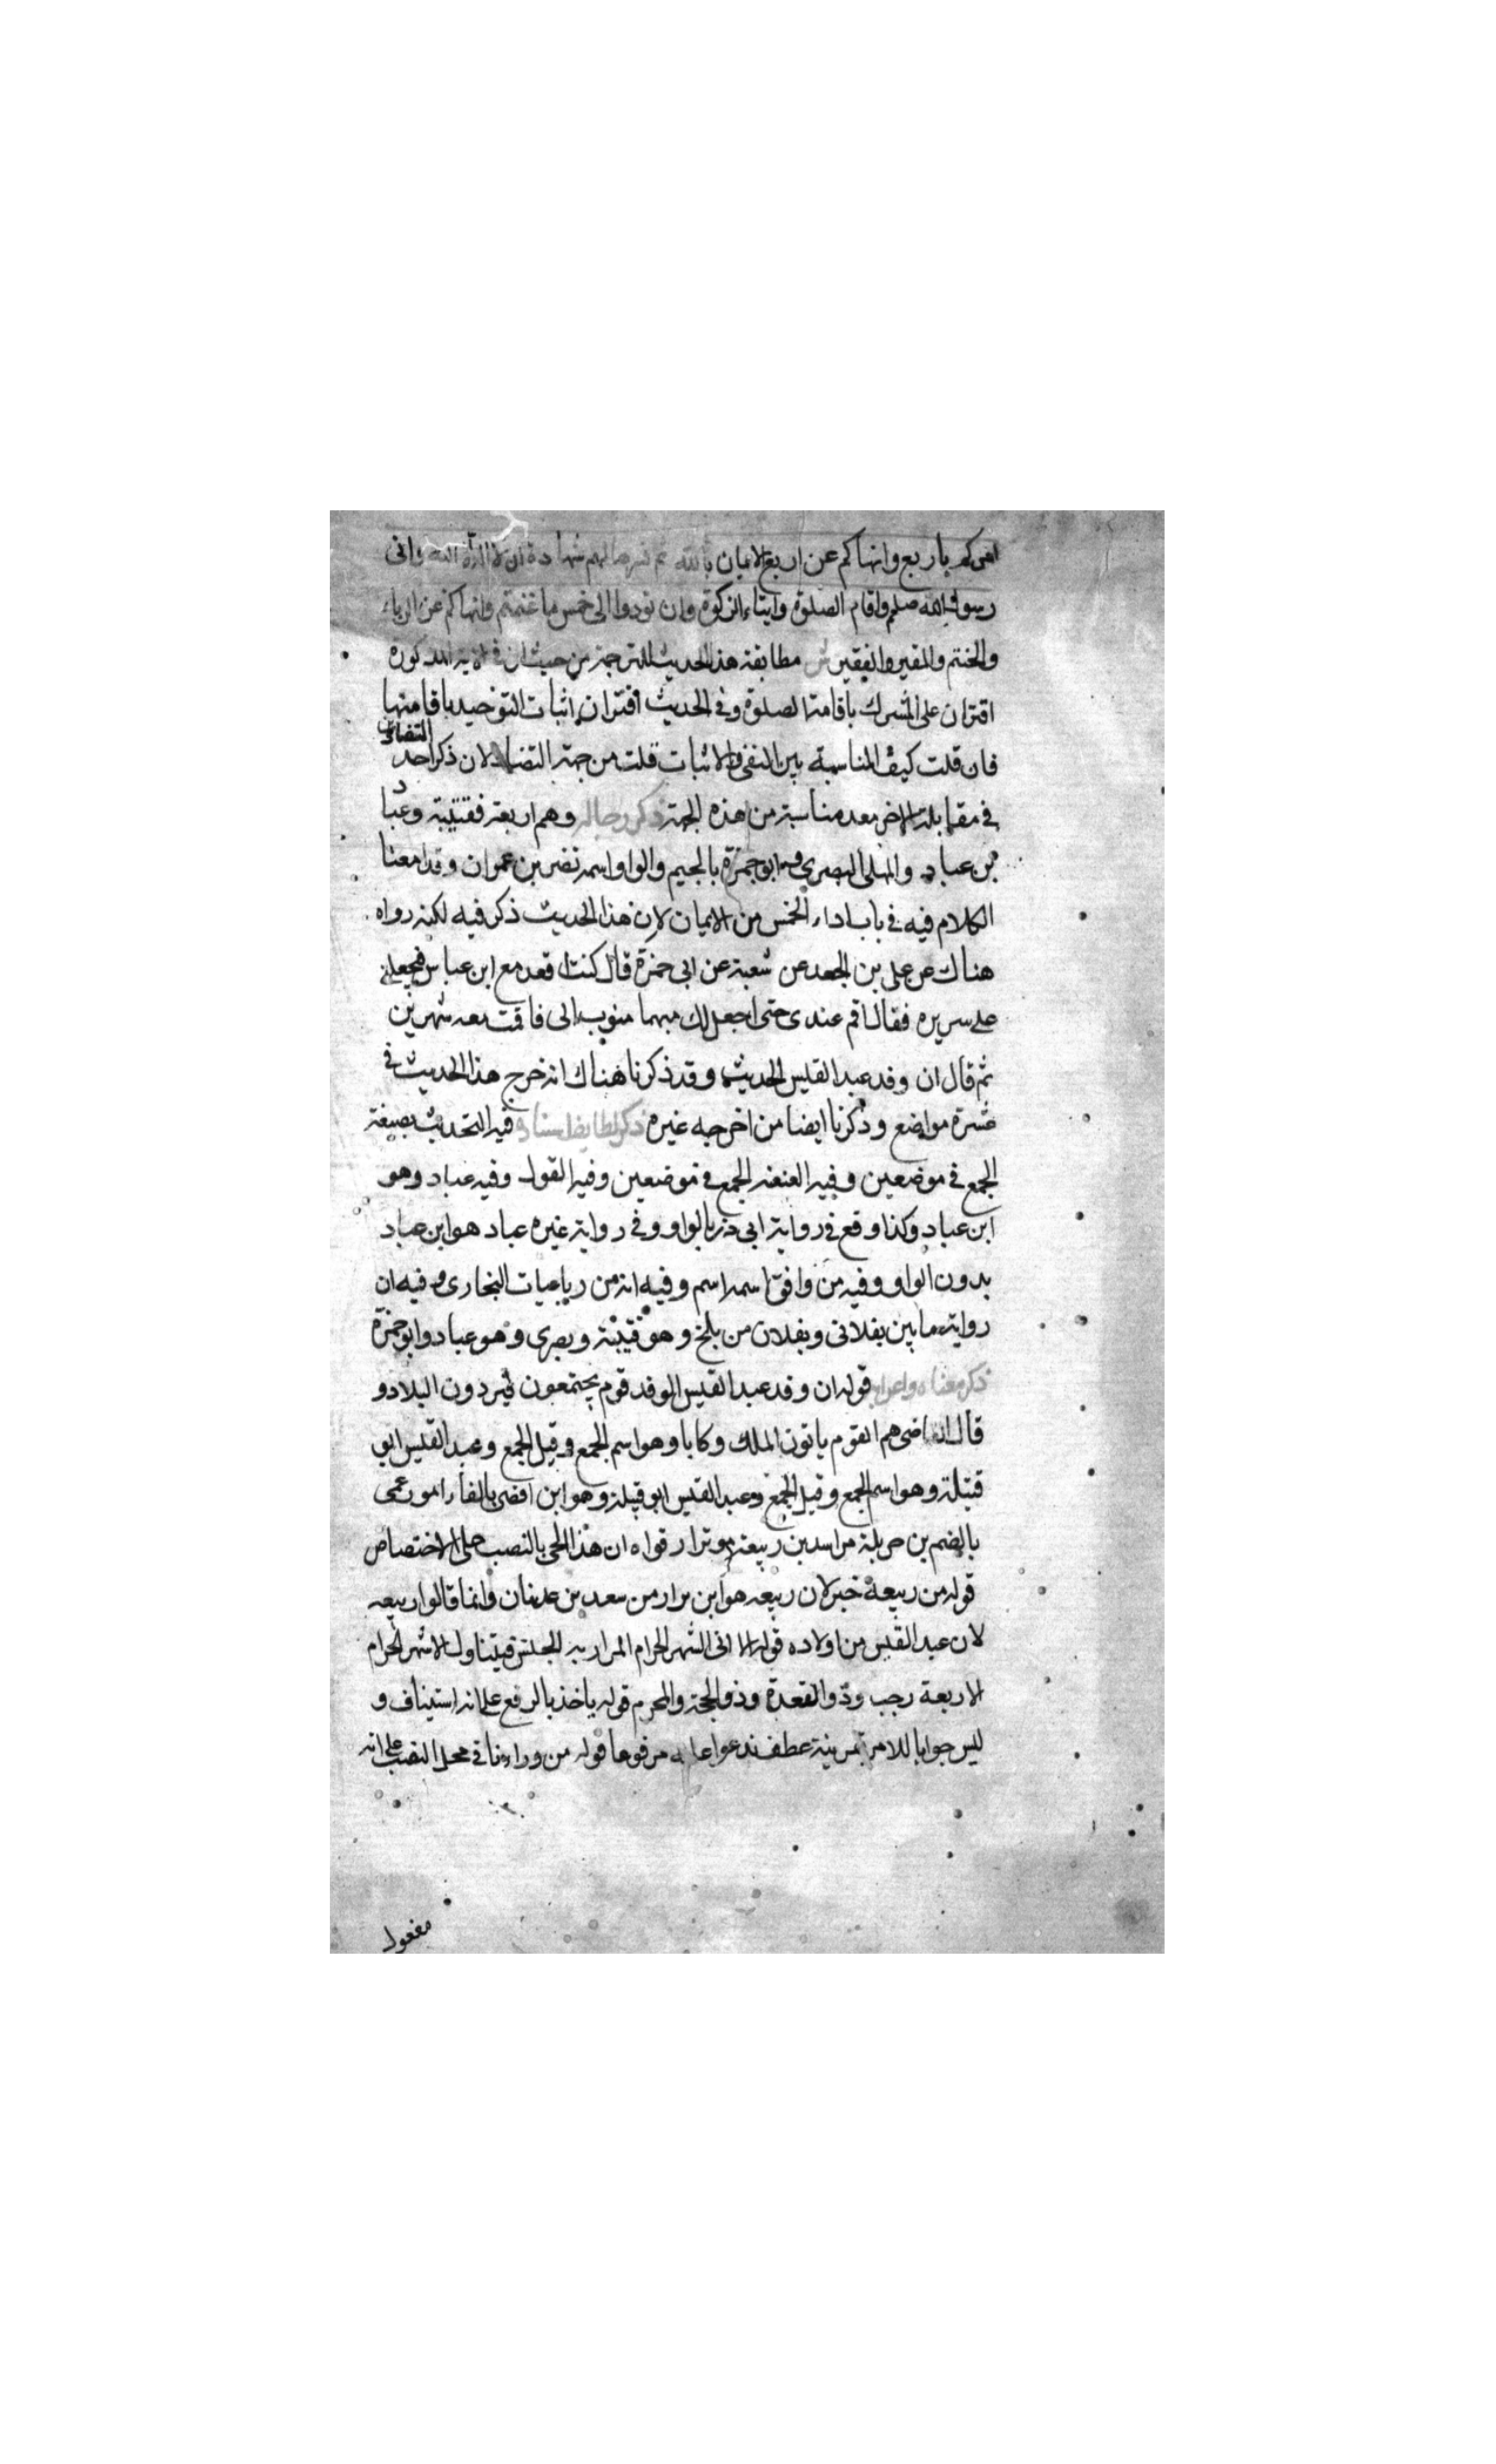 امركم باربع وانهاكم عن اربع الايمان بالله ثم فسرها لهم شهادة ان لا اله الا الله واني
رسول الله صلم واقام الصلوة وايتاء الزكوة وان تودوا الى خمس ما غنمتم وانهاكم عن الدباء
والحنتم والمقير والنقير ش مطابقة هذا الحديث للترجمة من حيث ان في الاية المذكورة
اقتران على الشرك باقامة الصلوة وفي الحديث اقتران اثبات التوحيد باقامتها
فان قلت كيف المناسبة بين النفي والاثبات قلت من جهة التضاد لان ذكر احد التضادين
في مقابلة الاخر معد مناسبة من هذه الجهة ذكر رجاله وهم اربعة قتيبة وعباد
بن عباد والمهلبي البصري وابو جمرة بالجيم والواو اسمه نصر بن عمران وقد امعنا
الكلام فيه في باب اداء الخمس من الايمان لان هذا الحديث ذكر فيه لكنه رواه
هناك عن علي بن الجعد عن شعبة عن ابي حمزة قال كنت اقعد مع ابن عباس فيجعلني
على سريره فقال اقم عندي حتى اجعل لك سهما من الى فاقمت معه شهرين
ثم قال ان وفد عبد القيس الحديث وقد ذكرنا هناك انه خرج هذا الحديث في
عشرة مواضع وذكرنا ايضا من اخرجه غيره ذكر لطايف اسناده فيه التحديث بصيغة
الجمع في موضعين وفيه العنعنه الجمع في موضعين وفيه القول وفيه عباد وهو
ابن عباد وكذا وقع في رواية ابي ذر بالواو وفي رواية غيره عباد هو ابن عباد
بدون الواو وفيه من وافق اسمه اسم وفيه انه من رباعيات البخاري وفيه ان
رواية ما بين بغلاني وبغلان من بلخ وهو قتيبة وبصري وهو عباد وابو حمزة
ذكر معناه واعرابه قوله ان وفد عبد القيس الوفد قوم يجتمعون فيردون البلاد و
قال القاضي هم القوم ياتون الملك وكابا وهو اسم الجمع وقيل الجمع وعبد القيس ابو
قبيلة وهو اسم الجمع وقيل الجمع وعبد القيس ابو قبيلة وهو ابن افصى بالفاء امو عمى
بالضم بن جديلة من اسد بن ربيعة بن نزار قوله ان هذا الحي بالنصب على الاختصاص
قوله من ربيعة خبر لان ربيعه هو ابن نزار من سعد بن عدنان وانما قالوا ربيعه
لان عبد القيس من اولاده قوله الا في الشهر الحرام المراد به الجنس فيتناول الاشهر الحرام
الاربعة رجب وذو القعدة وذو الحجة والمحرم قوله ياخذ بالرفع على انه استيناف و
ليس جوابا للامر بقرينة عطف ندعوا عليه مرفوعا قوله من وراءنا في محل النصب على انه
مفعول